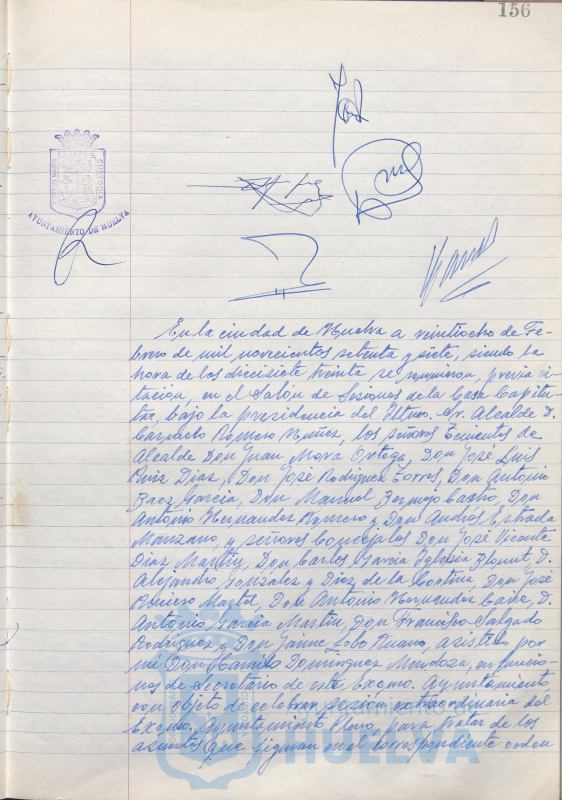 156
AYUNTAMIENTO DE HUELVA
En la ciudad de Huelva a veintiocho de Fe-
brero de mil novecientos setenta y siete, siendo la
hora de las diecisiete treinta se reunieron, previa ci-
tación, en el Salón de Sesiones de la Casa Capitu-
lar, bajo la presidencia del Iltmo. Sr. Alcalde D.
Carmelo Romero Núñez, los señores Tenientes de
Alcalde Don Juan Mora Ortega, Don José Luis
Ruiz Diaz, Don José Rodriguez Torres, Don Antonio
Baez Garcia, Don Manuel Bermejo Castro, Don
Antonio Hernandez Romero y Don Andrés Estrada
Manzano, y señores Concejales Don José Vicente
Diaz Martin, Don Carlos Garcia Iglesia D.
Alejandro Gonzalez y Diaz de la Cortina, Don José
Don Antonio Hernandez D.
Antonio Garcia Martin, Don Francisco Salgado
Rodriguez y Don Jaime Lobo Ruano, asistido por
mi Don Camilo Dominguez Mendoza, en funcio-
nes de Secretario de este Excmo. Ayuntamiento,
con objeto de celebrar sesión extraordinaria del
Excmo. Ayuntamiento Pleno, para tratar de los
asuntos que figuran en el correspondiente orden
HUELVA